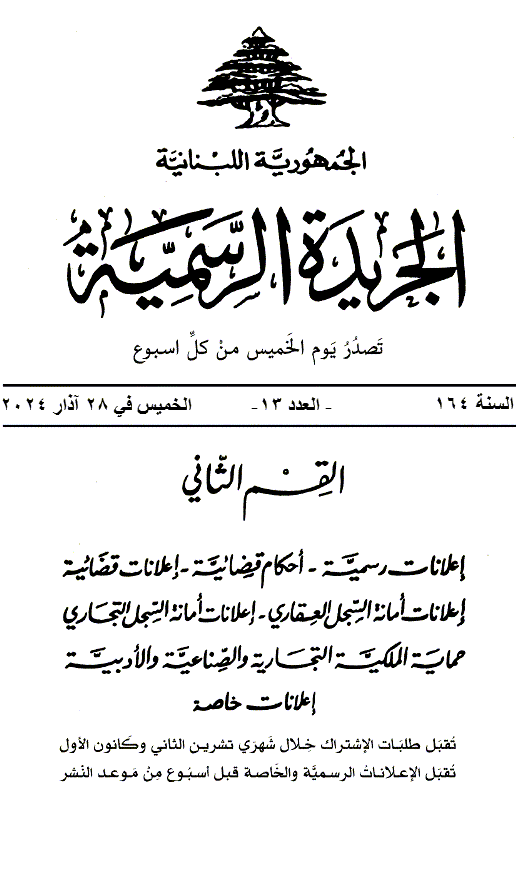 الجمهورية اللبنانية
الجريدة الرسمية
تَصدُرُ يَوم الخَميس منْ كلِّ اسبوع
السنة ١٦٤ - العدد ١٣ - الخميس في ٢٨ آذار ٢٠٢٤
القِسْم الثّاني
إعلانات رسميَّة - أحكام قضائيَّة - إعلانات قضائية
إعلانات أمانة السِّجل العقاري - إعلانات أمانة السِّجل التجاري
حماية الملكيَّة التجارية والصِّناعيَّة والأدبيَّة
إعلانات خاصة
تُقبَل طلبَات الإشتراك خِلال شَهرَي تشرين الثاني وكانون الأول
تُقبَل الإعلاناتُ الرسميَّة والخَاصة قبل أسبُوع مِنْ مَوعد النَشر